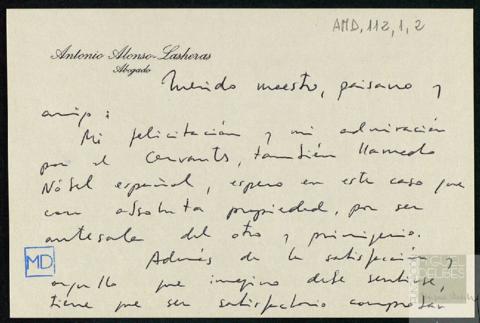 AMD, 112, 1, 2
Antonio Alonso-Lasheras
Abogado
Querido maestro, paisano y
amigo:
Mi felicitación y mi admiración
por el Cervantes, también llamado
Nóbel español, espero en este caso que
con absoluta propiedad, por ser
antesala del otro y primigenio.
MD
Además de la satisfacción y
orgullo que imagino debe sentirse,
tiene que ser satisfactorio comprobar
DELIBES